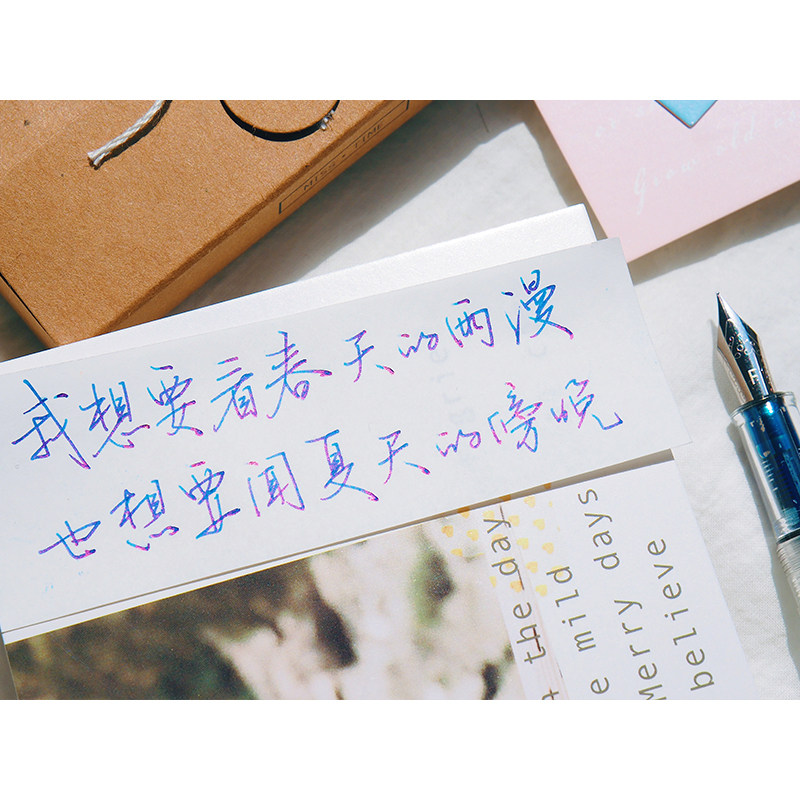 MISS · TIME
Grow old
我想要看春天的雨漫
也想要闻夏天的傍晚
the day
e mild
Merry days
believe
F